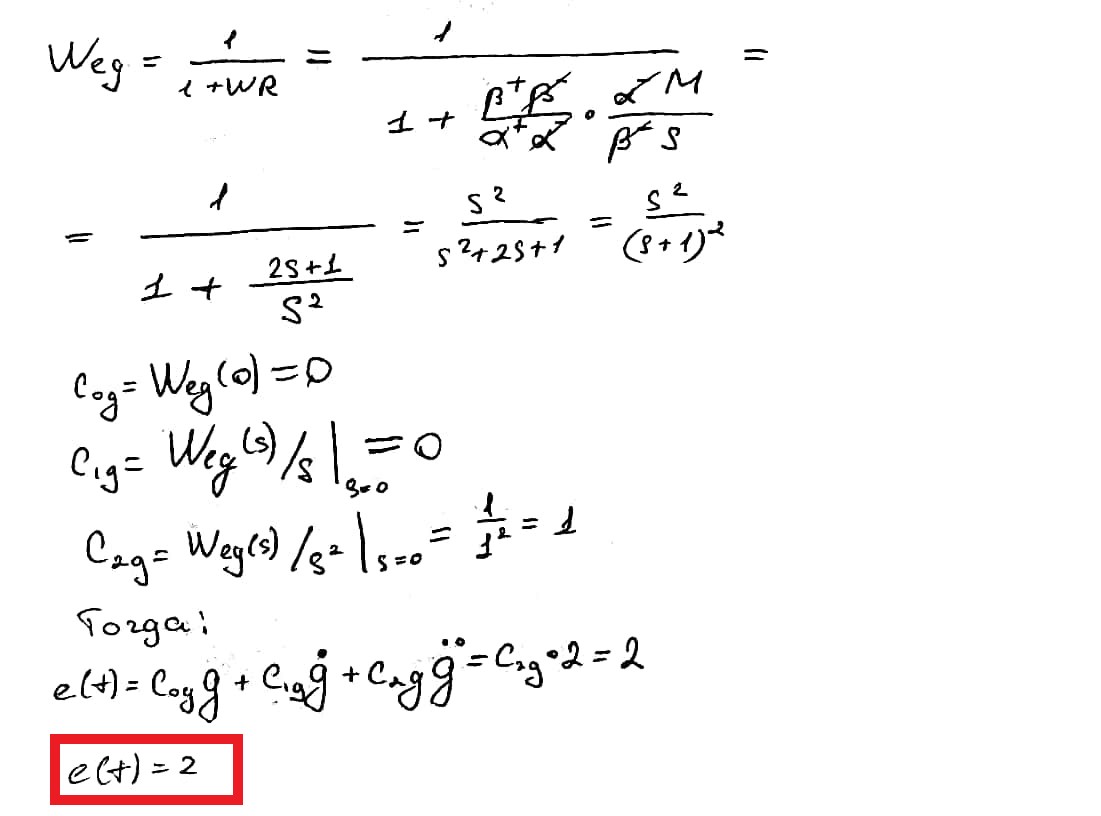 Weg = 1/(1+WR) = 1/(1 + (β⁺β⁻)/(α⁺α⁻) · (α⁻M)/(β⁻S)) =
= 1/(1 + (2s+1)/s²) = s²/(s²+2s+1) = s²/(s+1)²
C₀g = Weg(0) = 0
C₁g = Weg(s)/s |s=0 = 0
C₂g = Weg(s)/s² |s=0 = 1/1² = 1
Тогда:
e(t) = C₀g g + C₁g ġ + C₂g g̈ = C₂g · 2 = 2
e(t) = 2